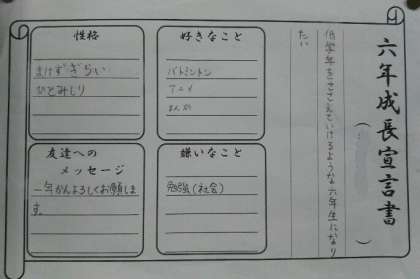 六年成長宣言書
(
)
低学年をささえていけるような六年生になり
たい
好きなこと
バトミントン
アニメ
まんが
嫌いなこと
勉強(社会)
性格
まけずぎらい
ひとみしり
友達への
メッセージ
一年かんよろしくお願いしま
す。